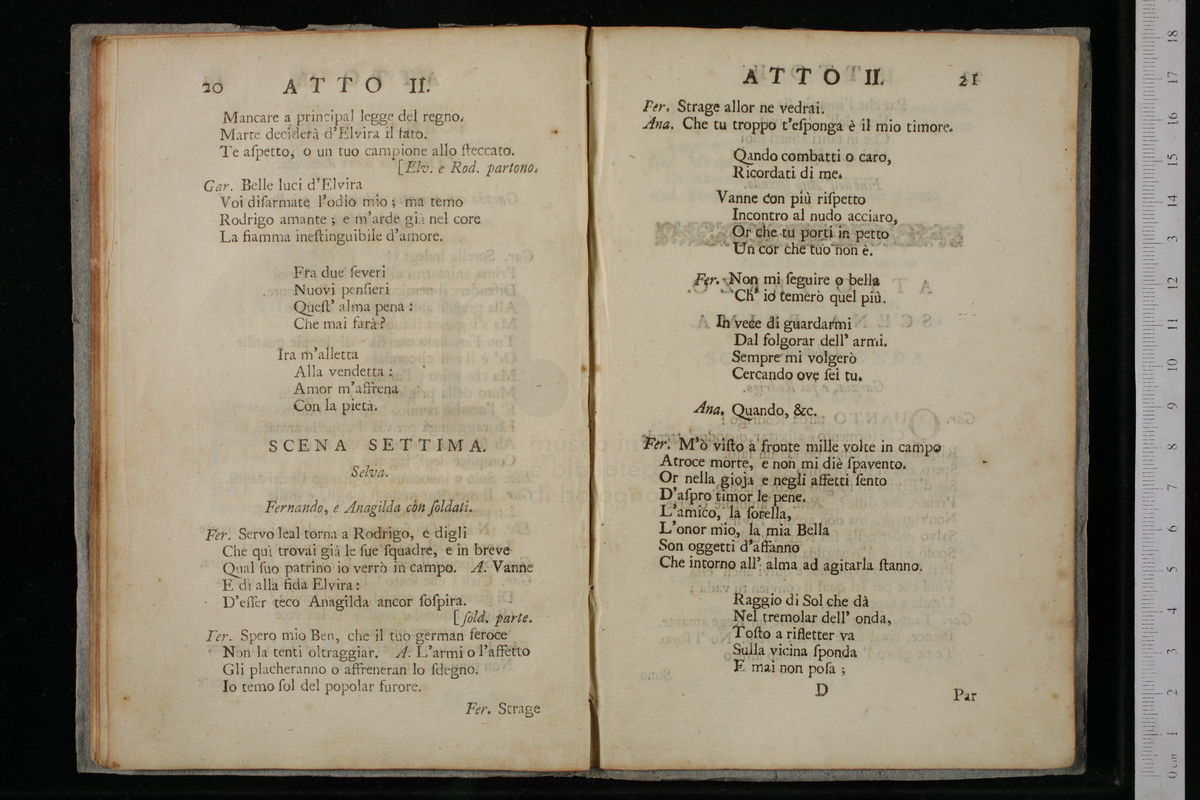 20 ATTO II.
Mancare a principal legge del regno.
Marte deciderà d'Elvira il fato.
Te aſpetto, o un tuo campione allo ſteccato.
[Elv. e Rod. partono.
Gar. Belle luci d'Elvira
Voi diſarmate l'odio mio ; ma temo
Rodrigo amante ; e m'arde già nel core
La fiamma ineſtinguibile d'amore.
Fra due ſeveri
Nuovi penſieri
Queſt' alma pena :
Che mai farà ?
Ira m'alletta
Alla vendetta :
Amor m'affrena
Con la pietà.
SCENA SETTIMA.
Selva.
Fernando, e Anagilda con ſoldati.
Fer. Servo leal torna a Rodrigo, e digli
Che quì trovai già le ſue ſquadre, e in breve
Qual ſuo patrino io verrò in campo. A. Vanne
E di alla fida Elvira :
D'eſſer teco Anagilda ancor ſoſpira.
[ſold. parte.
Fer. Spero mio Ben, che il tuo german feroce
Non la tenti oltraggiar. A. L'armi o l'affetto
Gli placheranno o affreneran lo ſdegno.
Io temo ſol del popolar furore.
Fer. Strage
ATTO II. 21
Fer. Strage allor ne vedrai.
Ana. Che tu troppo t'eſponga è il mio timore.
Qando combatti o caro,
Ricordati di me.
Vanne con più riſpetto
Incontro al nudo acciaro,
Or che tu porti in petto
Un cor che tuo non è.
Fer. Non mi ſeguire o bella
Ch' io temerò quel più.
In vece di guardarmi
Dal folgorar dell' armi.
Sempre mi volgerò
Cercando ove ſei tu.
Ana. Quando, &c.
Fer. M'ò viſto a fronte mille volte in campo
Atroce morte, e non mi diè ſpavento.
Or nella gioja e negli affetti ſento
D'aſpro timor le pene.
L'amico, la ſorella,
L'onor mio, la mia Bella
Son oggetti d'affanno
Che intorno all' alma ad agitarla ſtanno.
Raggio di Sol che dà
Nel tremolar dell' onda,
Toſto a rifletter va
Sulla vicina ſponda
E mai non poſa ;
D
Par